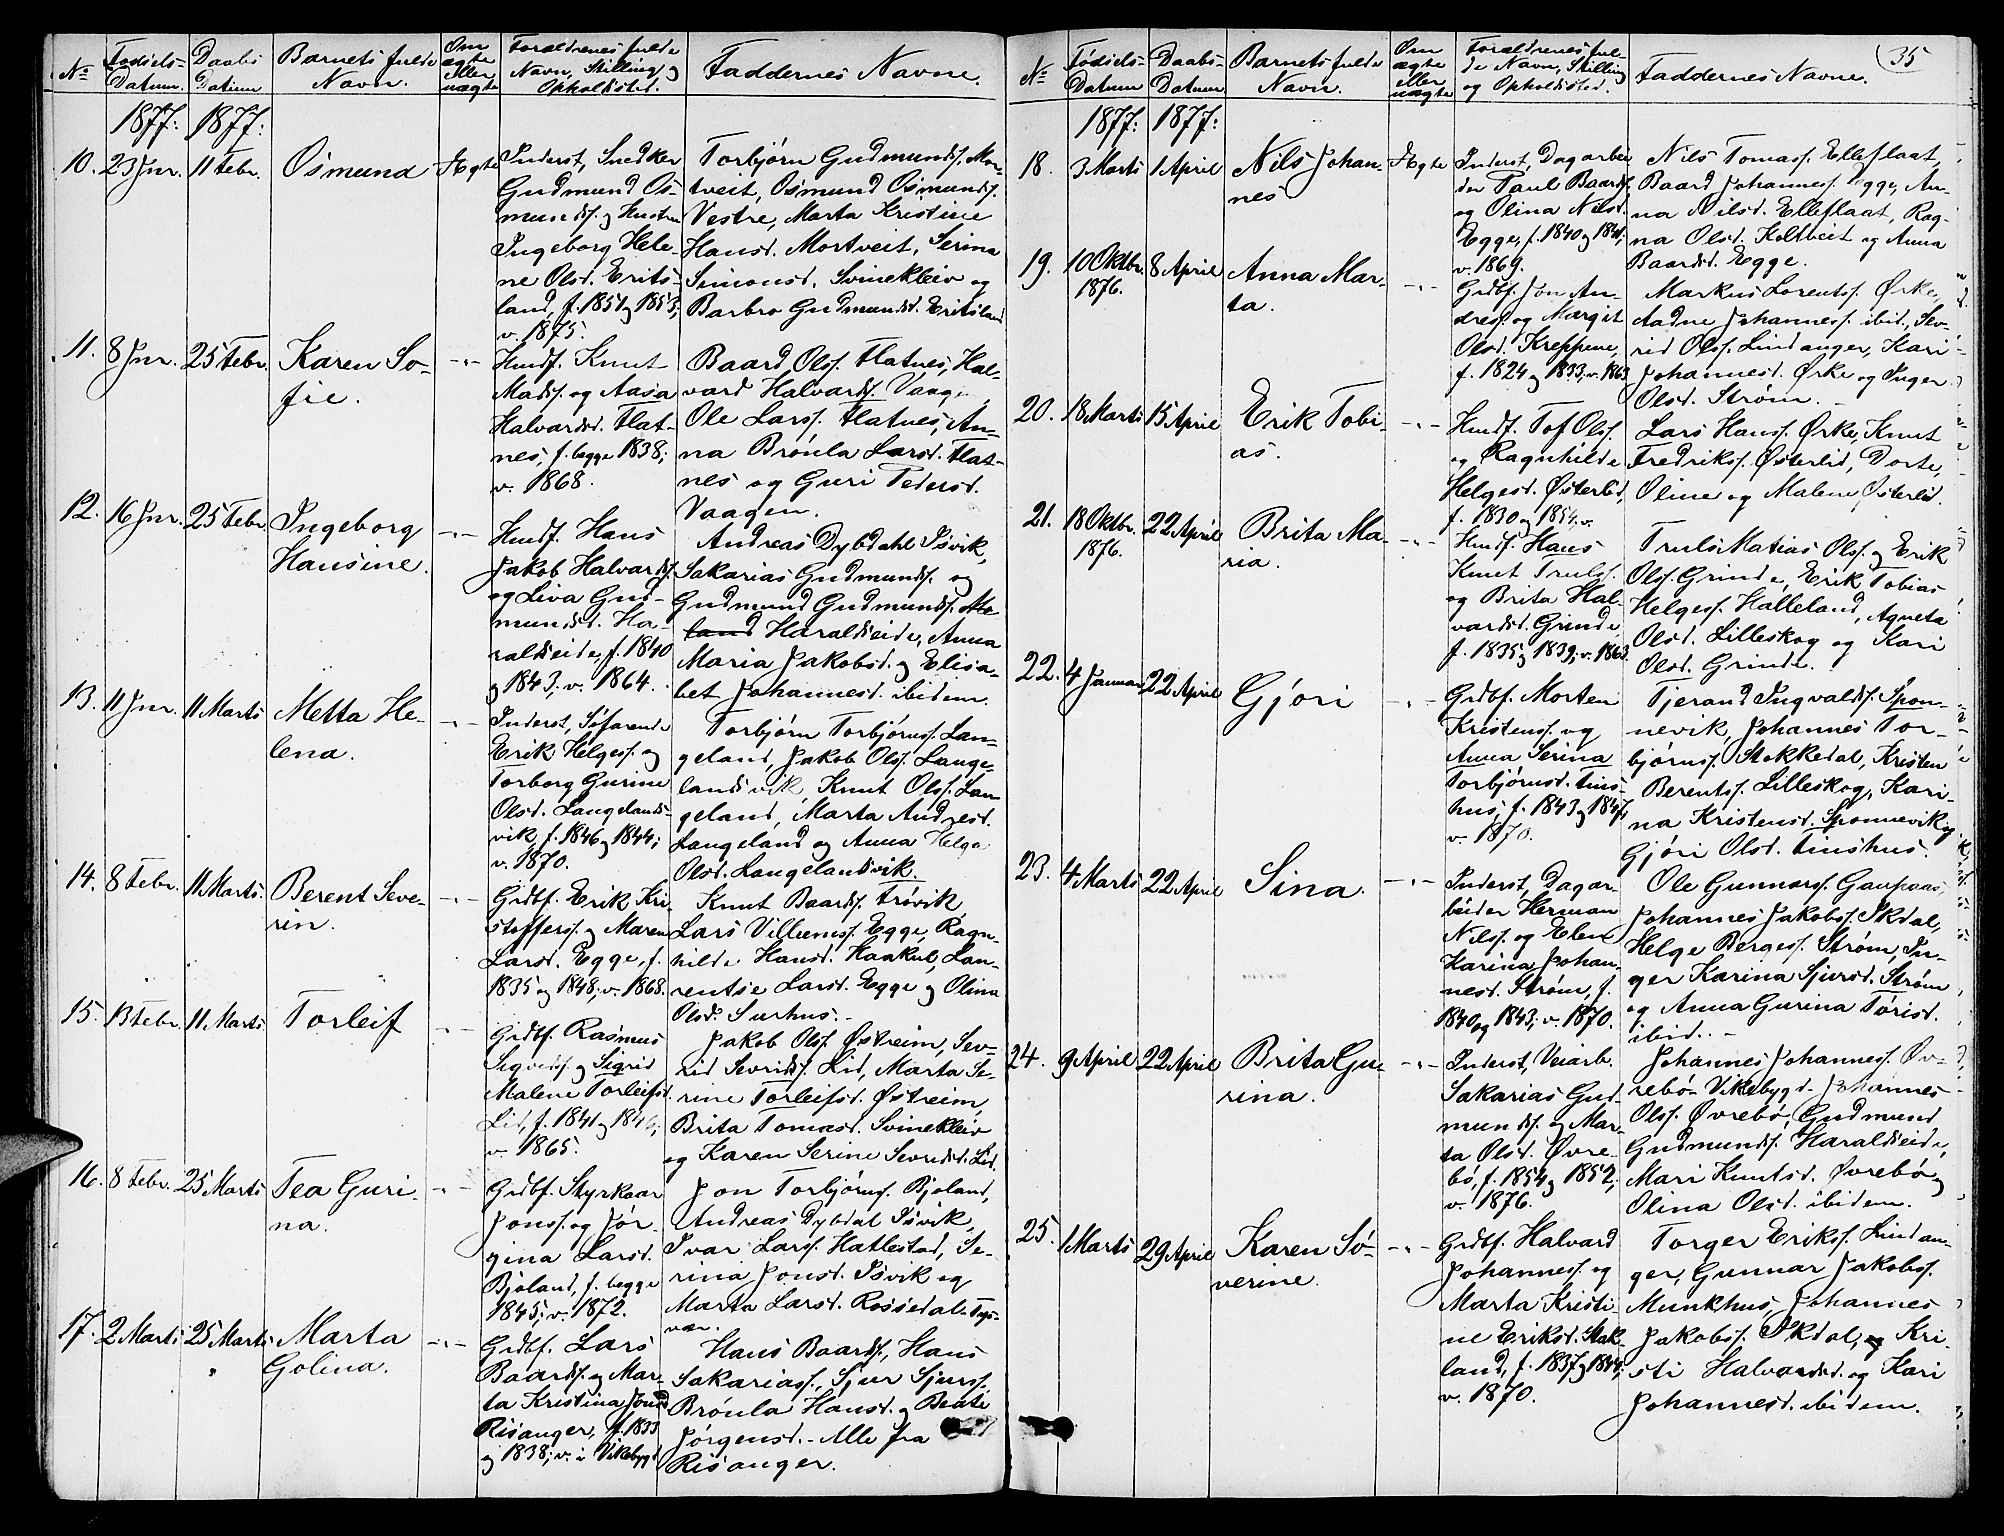 No
Fødsels-
Datum.
Daabs
Datum
Barnets fulde
Navn.
Om
ægte
eller
uægte
Forældrenes fulde
Navn, Stilling og
Opholdssted.
Faddernes Navne.
1877: 1877:
10. 23 Jnr. 11 Febr. Osmund Ægte
Inderst, Snedker
Gudmund Os-
mundss. og Hustru
Ingeborg Hele-
ne Olsd. Erits-
land, f. 1851 og 1853;
v. 1875.
Torbjørn Gudmundss. Mor-
tveit, Osmund Osmundss.
Vestre, Marta Kristine
Hansd. Mortveit, Serina
Simonsd. Svinekleiv og
Barbro Gudmundsd. Eritsland
11. 8 Jnr. 25 Febr. Karen So-
fie.
Husf. Knut
Madss. og Aasa
Halvardsd. Flat-
nes, f. begge 1838;
v. 1868.
Baard Olss. Flatnes, Hal-
vard Halvardss. Vaage,
Ole Larss. Flatnes, An-
na Brønla Larsd. Flat-
nes og Guri Pedersd.
Vaagen.
12. 16 Jnr. 25 Febr. Ingeborg
Hansine.
Husf. Hans
Jakob Halvardss.
og Liva Gud-
mundsd. Ha-
raldseide, f. 1840
og 1843; v. 1864.
Andreas Dybdahl Isvik,
Sakarias Gudmundss. og
Gudmund Gudmundss.
Haraldseide, Anna
Maria Jakobsd. og Elisa-
bet Johannesd. ibidem.
13. 11 Jnr. 11 Marts Metta He-
lena.
Inderst, Søfarende
Erik Helgess. og
Torborg Gurine
Olsd. Langelands-
vik, f. 1846 og 1844;
v. 1870.
Torbjørn Torbjørnss. Lan-
geland, Jakob Olss. Lange-
landsvik, Knut Olss. Lan-
geland, Marta Andresd.
Langeland og Anna Helga
Olsd. Langelandsvik.
14. 8 Febr. 11 Marts. Berent Seve-
rin.
Grdbf. Erik Kri-
stofferss. og Maren
Larsd. Egge, f.
1835 og 1848; v. 1868.
Knut Baardss. Frøvik
Lars Villumss. Egge, Ragn-
hilde Hansd. Haakul, Lau-
rentse Larsd. Egge og Olina
Olsd. Surhus.
15. 13 Febr. 11 Marts Torleif
Grdbf. Rasmus
Sigvedss. og Sigrid
Malene Torleifsd.
Lid, f. 1841 og 1846;
v. 1865.
Jakob Olss. Østreim, Sev-
rid Sevridss. Lid, Marta Se-
rine Torleifsd. Østreim,
Brita Tomasd. Svinekleiv
og Karen Serine Sevridsd. Lid.
16. 8 Febr. 25 Marts Tea Guri-
na.
Grdbf. Styrkaar
Jonss. og Jør-
gina Larsd.
Bjoland, f. begge
1845; v. 1872.
Jon Torbjørnss. Bjoland,
Andreas Dybdal Isvik,
Ivar Larss. Hatlestad, Se-
rina Jonsd. Isvik og
Marta Larsd. Rossedal Tys-
vær.
17. 2 Marts 25 Marts Marta
Golina.
Grdbf. Lars
Baardss. og Mar-
ta Kristina Jonsd.
Risanger, f. 1833
og 1838; v. i Vikebygd
Hans Baardss., Hans
Sakariass., Sjur Sjurss.
Brønla Hansd. og Beate
Jørgensd. - Alle fra
Risanger.
35
No
Fødsels-
Datum
Daabs-
Datum
Barnets fulde
Navn.
Om
ægte
eller
uægte
Forældrenes ful-
de Navn, Stilling
og Opholdssted.
Faddernes Navne.
1877: 1877:
18. 3 Marts 1 April Nils Johan-
nes
Ægte
Inderst, Dagarbei-
der Paul Baardss.
og Olina Nilsd.
Egge, f. 1840 og 1841;
v. 1869.
Nils Tomass. Elleflaat,
Baard Johanness. Egge, An-
na Nilsd. Elleflaat, Rag-
na Olsd. Koltveit og Anna
Baardsd. Egge.
19. 10 Oktbr. 8 April Anna Mar-
1876.
ta.
Grdbf. Jon An-
dress. og Margit
Olsd. Kreppene,
f. 1824 og 1833; v. 1863
Markus Lorentss. Ørke,
Aadne Johanness. ibid., Sev-
rid Olss. Lindanger, Kari
Johannesd. Ørke og Inger
Olsd. Strøm.
20. 18 Marts 15 April Erik Tobi-
as.
Husf. Tof Olss.
og Ragnhilde
Helgesd. Østerlid,
f. 1830 og 1854. v.
Lars Hanss. Ørke, Knut
Fredrikss. Østerlid, Dorte,
Oline og Malene Østerlid.
21. 18 Oktbr. 22 April Brita Ma-
1876.
ria.
Husf. Hans
Knut Trulss.
og Brita Hal-
vardsd. Grinde,
f. 1835 og 1839; v. 1863.
Truls Matias Olss. og Erik
Olss. Grinde, Erik Tobias
Helgess. Halleland, Agneta
Olsd. Lilleskog og Kari
Olsd. Grinde.
22. 4 Januar 22 April Gjøri
Grdbf. Morten
Kristenss. og
Anna Serina
Torbjørnsd. Tins-
hus, f. 1843 og 1847,
v. 1870.
Tjerand Ingvaldss. Spon-
nevik, Johannes Tor-
bjørnss. Stokkedal, Kristen
Berentss. Lilleskog, Kari-
na Kristensd. Sponnevik og
Gjøri Olsd. Tinshus.
23. 4 Marts 22 April Sina.
Inderst, Dagar-
beider Herman
Nilss. og Elen
Karina Johan-
nesd. Strøm, f.
1840 og 1843; v. 1870.
Ole Gunnarss. Gaupaas,
Johannes Jakobss. Økdal,
Helge Bergess. Strøm, In-
ger Karina Sjursd. Strøm
og Anna Gurina Torisd.
ibid. -
24. 9 April 22 April Brita Gu-
rina.
Inderst, Veiarb.
Sakarias Gud-
mundss. og Mar-
ta Olsd. Øvre-
bø, f. 1854 og 1852;
v. 1876.
Johannes Johanness. Øv-
rebø - Vikebygd - Johannes
Olss. Øvrebø, Gudmund
Gudmundss. Haraldseide,
Mari Knutsd. Øvrebø og
Olina Olsd. ibidem.
25. 1 Marts 29 April Karen Sø-
verine.
Grdbf. Halvard
Johanness. og
Marta Kristi-
ne Eriksd. Stak-
land, f. 1837 og 1844;
v. 1870.
Torger Erikss. Lindan-
ger, Gunnar Jakobss.
Munkhus, Johannes
Jakobss. Økdal, og Kri-
sti Halvardsd. og Kari
Johannesd. ibidem.